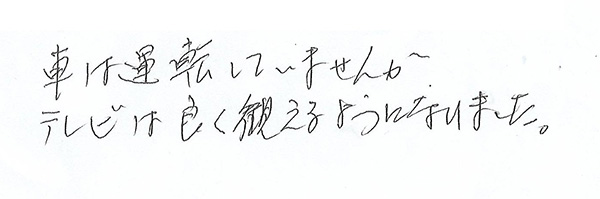 車は運転していませんが
テレビは良く観えるようになりました。